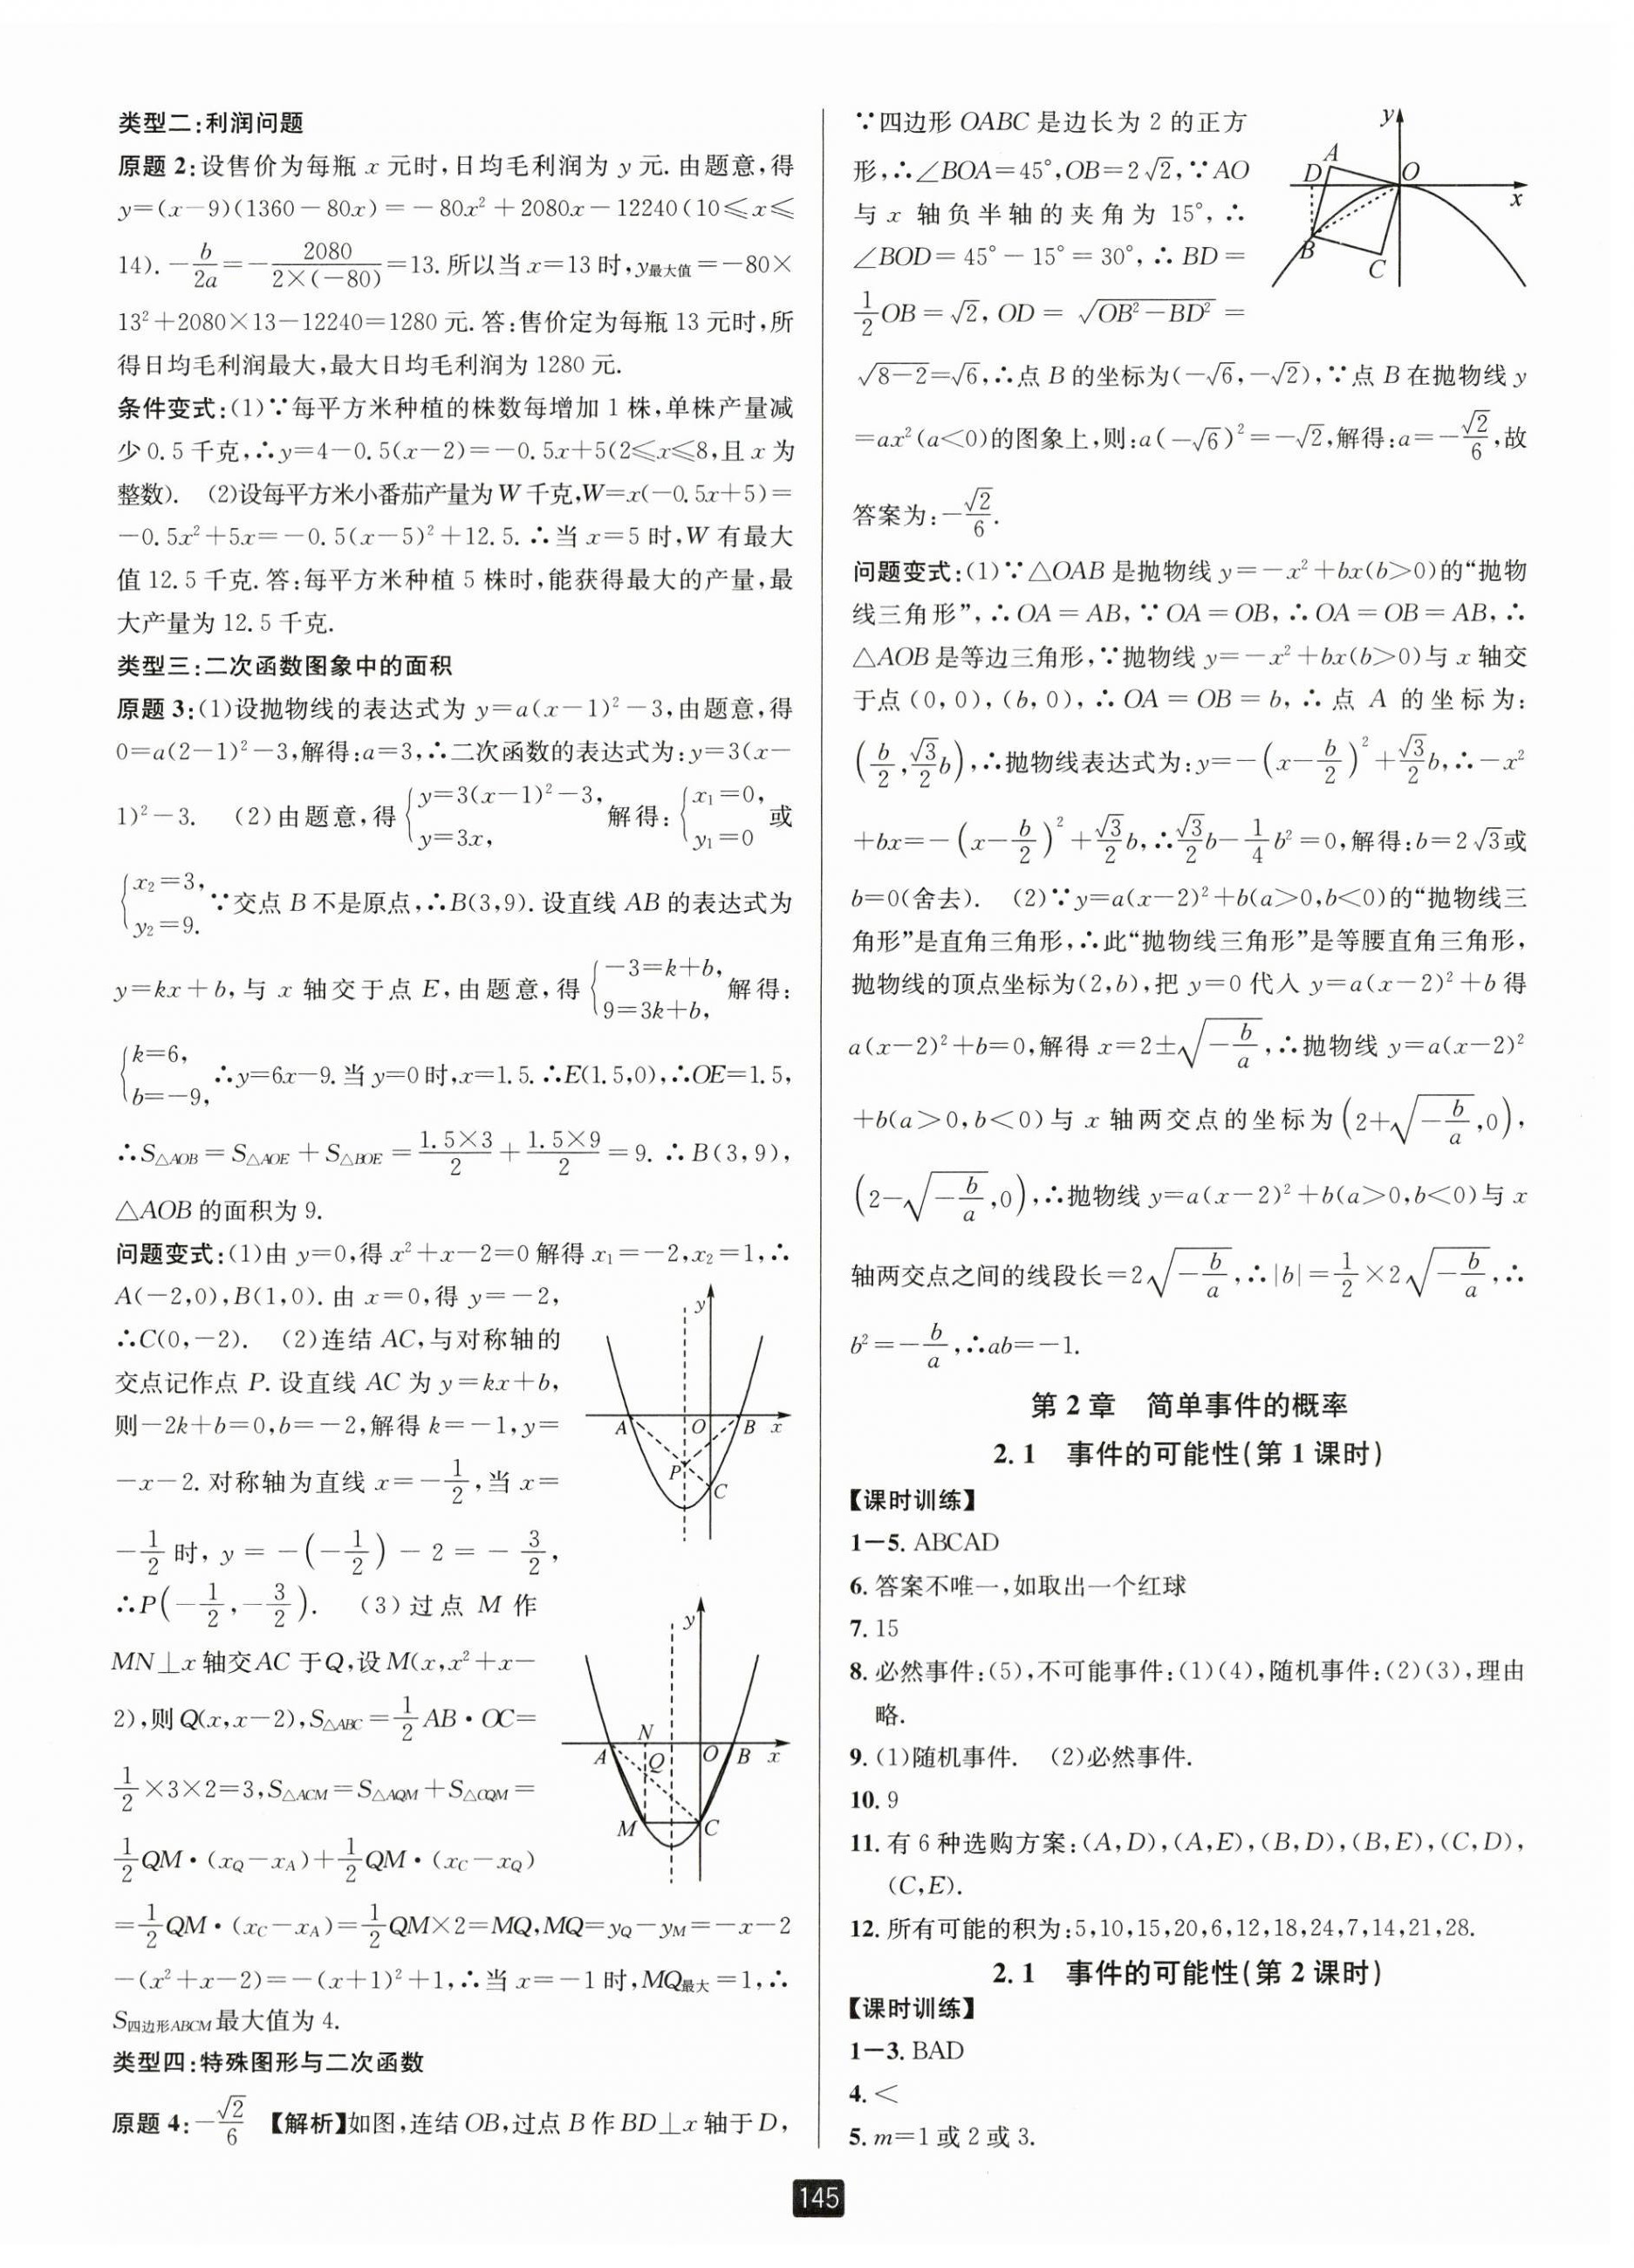 类型二:利润问题
原题 2:设售价为每瓶 x 元时,日均毛利润为 y 元. 由题意,得
y=(x-9)(1360-80x)=-80x²+2080x-12240(10≤x≤
14). -b/2a=-2080/(2×(-80))=13. 所以当 x=13 时,y最大值=-80×
13²+2080×13-12240=1280 元. 答:售价定为每瓶 13 元时,所
得日均毛利润最大,最大日均毛利润为 1280 元.
条件变式:(1)∵每平方米种植的株数每增加 1 株,单株产量减
少 0.5 千克,∴y=4-0.5(x-2)=-0.5x+5(2≤x≤8,且 x 为
整数). (2)设每平方米小番茄产量为 W 千克,W=x(-0.5x+5)=
-0.5x²+5x=-0.5(x-5)²+12.5. ∴当 x=5 时,W 有最大
值 12.5 千克. 答:每平方米种植 5 株时,能获得最大的产量,最
大产量为 12.5 千克.
类型三:二次函数图象中的面积
原题 3:(1)设抛物线的表达式为 y=a(x-1)²-3,由题意,得
0=a(2-1)²-3,解得:a=3,∴二次函数的表达式为:y=3(x-
1)²-3. (2)由题意,得{y=3(x-1)²-3, y=3x, 解得:{x₁=0, y₁=0 或
{x₂=3, y₂=9. ∵交点 B 不是原点,∴B(3,9). 设直线 AB 的表达式为
y=kx+b,与 x 轴交于点 E,由题意,得{-3=k+b, 9=3k+b, 解得:
{k=6, b=-9, ∴y=6x-9. 当 y=0 时,x=1.5. ∴E(1.5,0),∴OE=1.5,
∴S△AOB=S△AOE+S△BOE=(1.5×3)/2+(1.5×9)/2=9. ∴B(3,9),
△AOB 的面积为 9.
问题变式:(1)由 y=0,得 x²+x-2=0 解得 x₁=-2,x₂=1,∴
A(-2,0),B(1,0). 由 x=0,得 y=-2,
∴C(0,-2). (2)连结 AC,与对称轴的
交点记作点 P. 设直线 AC 为 y=kx+b,
则-2k+b=0,b=-2,解得 k=-1,y=
-x-2. 对称轴为直线 x=-1/2,当 x=
-1/2 时, y=-(-1/2)-2=-3/2,
∴P(-1/2,-3/2). (3)过点 M 作
MN⊥x 轴交 AC 于 Q,设 M(x,x²+x-
2),则 Q(x,x-2),S△ABC=1/2 AB·OC=
1/2×3×2=3,S△ACM=S△AQM+S△CQM=
1/2 QM·(xQ-xA)+1/2 QM·(xC-xQ)
=1/2 QM·(xC-xA)=1/2 QM×2=MQ,MQ=yQ-yM=-x-2
-(x²+x-2)=-(x+1)²+1,∴当 x=-1 时,MQ最大=1,∴
S四边形ABCM最大值为 4.
y
A
O
B
x
P
C
y
N
A
Q
O
B
x
M
C
类型四:特殊图形与二次函数
原题 4:-√2/6 【解析】如图,连结 OB,过点 B 作 BD⊥x 轴于 D,
∵四边形 OABC 是边长为 2 的正方
形,∴∠BOA=45°,OB=2√2,∵AO
与 x 轴负半轴的夹角为 15°,∴
∠BOD=45°-15°=30°,∴BD=
1/2 OB=√2, OD=√(OB²-BD²)=
y
A
D
O
x
B
C
√(8-2)=√6,∴点 B 的坐标为(-√6,-√2),∵点 B 在抛物线 y
=ax²(a<0)的图象上,则:a(-√6)²=-√2,解得:a=-√2/6,故
答案为:-√2/6.
问题变式:(1)∵△OAB 是抛物线 y=-x²+bx(b>0)的“抛物
线三角形”,∴OA=AB,∵OA=OB,∴OA=OB=AB,∴
△AOB 是等边三角形,∵抛物线 y=-x²+bx(b>0)与 x 轴交
于点(0,0),(b,0),∴OA=OB=b,∴点 A 的坐标为:
(b/2,√3/2 b),∴抛物线表达式为:y=-(x-b/2)²+√3/2 b,∴-x²
+bx=-(x-b/2)²+√3/2 b,∴√3/2 b-1/4 b²=0,解得:b=2√3或
b=0(舍去). (2)∵y=a(x-2)²+b(a>0,b<0)的“抛物线三
角形”是直角三角形,∴此“抛物线三角形”是等腰直角三角形,
抛物线的顶点坐标为(2,b),把 y=0 代入 y=a(x-2)²+b 得
a(x-2)²+b=0,解得 x=2±√(-b/a),∴抛物线 y=a(x-2)²
+b(a>0,b<0)与 x 轴两交点的坐标为(2+√(-b/a),0),
(2-√(-b/a),0),∴抛物线 y=a(x-2)²+b(a>0,b<0)与 x
轴两交点之间的线段长=2√(-b/a),∴|b|=1/2×2√(-b/a),∴
b²=-b/a,∴ab=-1.
第 2 章 简单事件的概率
2.1 事件的可能性(第 1 课时)
【课时训练】
1-5. ABCAD
6. 答案不唯一,如取出一个红球
7. 15
8. 必然事件:(5),不可能事件:(1)(4),随机事件:(2)(3),理由
略.
9. (1)随机事件. (2)必然事件.
10. 9
11. 有 6 种选购方案:(A,D),(A,E),(B,D),(B,E),(C,D),
(C,E).
12. 所有可能的积为:5,10,15,20,6,12,18,24,7,14,21,28.
2.1 事件的可能性(第 2 课时)
【课时训练】
1-3. BAD
4. <
5. m=1 或 2 或 3.
145